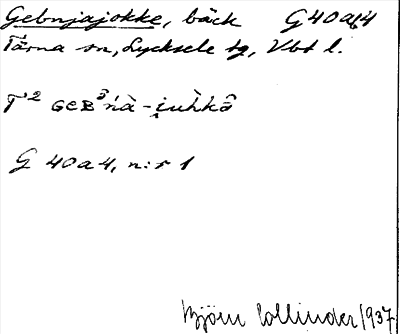 Gebnjajokke, bäck G40a4
Tärna sn, Lycksele tg, Vbt l.
G 40a4, n:r 1
Björn Collinder 1937